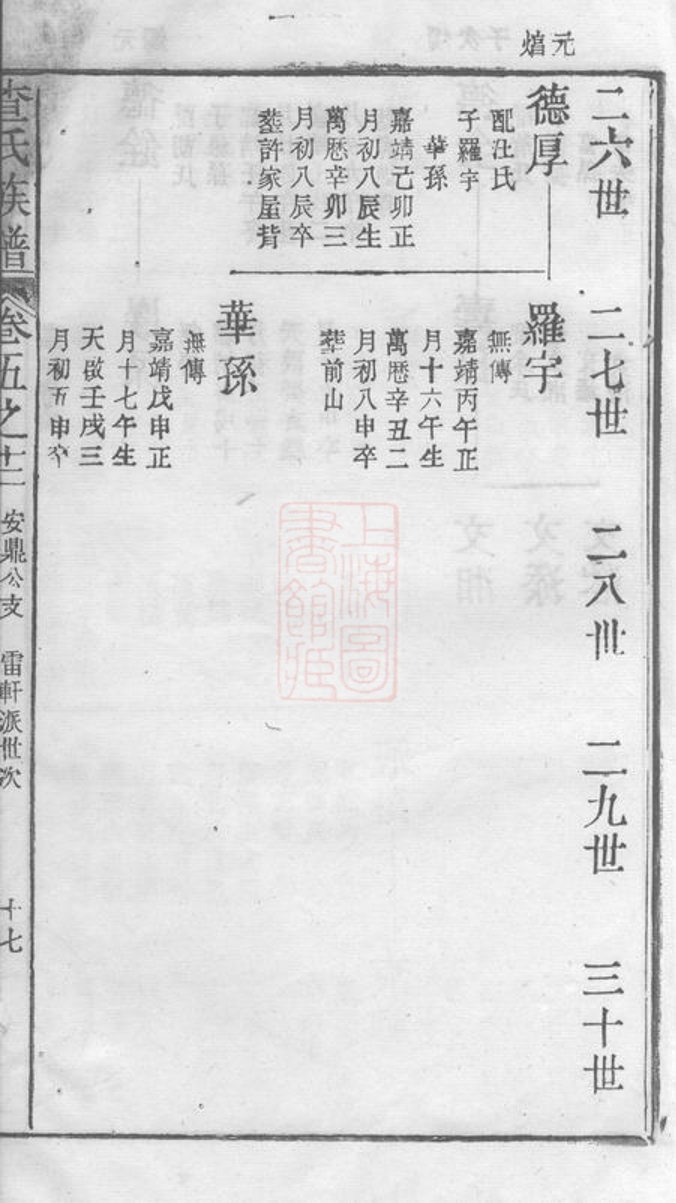 元焻
二六世 二七世 二八世 二九世 三十世
德厚
配汪氏
子羅宇
華孫
嘉靖己卯正
月初八辰生
萬歷辛卯三
月初八辰卒
塟許家屋背
羅宇
無傳
嘉靖丙午正
月十六午生
萬歷辛丑二
月初八申卒
塟前山
華孫
無傳
嘉靖戊申正
月十七午生
天啟壬戌三
月初五申卒
查氏族譜 卷五之十二 安鼎公支 雷軒派世次 十七
上海圖
書館藏